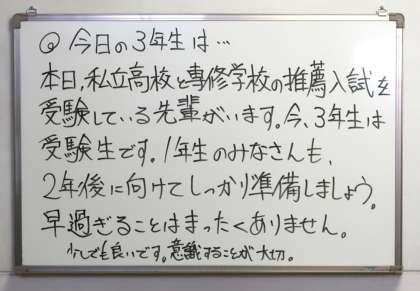 ◎ 今日の3年生は…
本日,私立高校と専修学校の推薦入試を
受験している先輩がいます。今、3年生は
受験生です。1年生のみなさんも、
2年後に向けてしっかり準備しましょう。
早過ぎることはまったくありません。
少しでも良いです。意識することが大切。